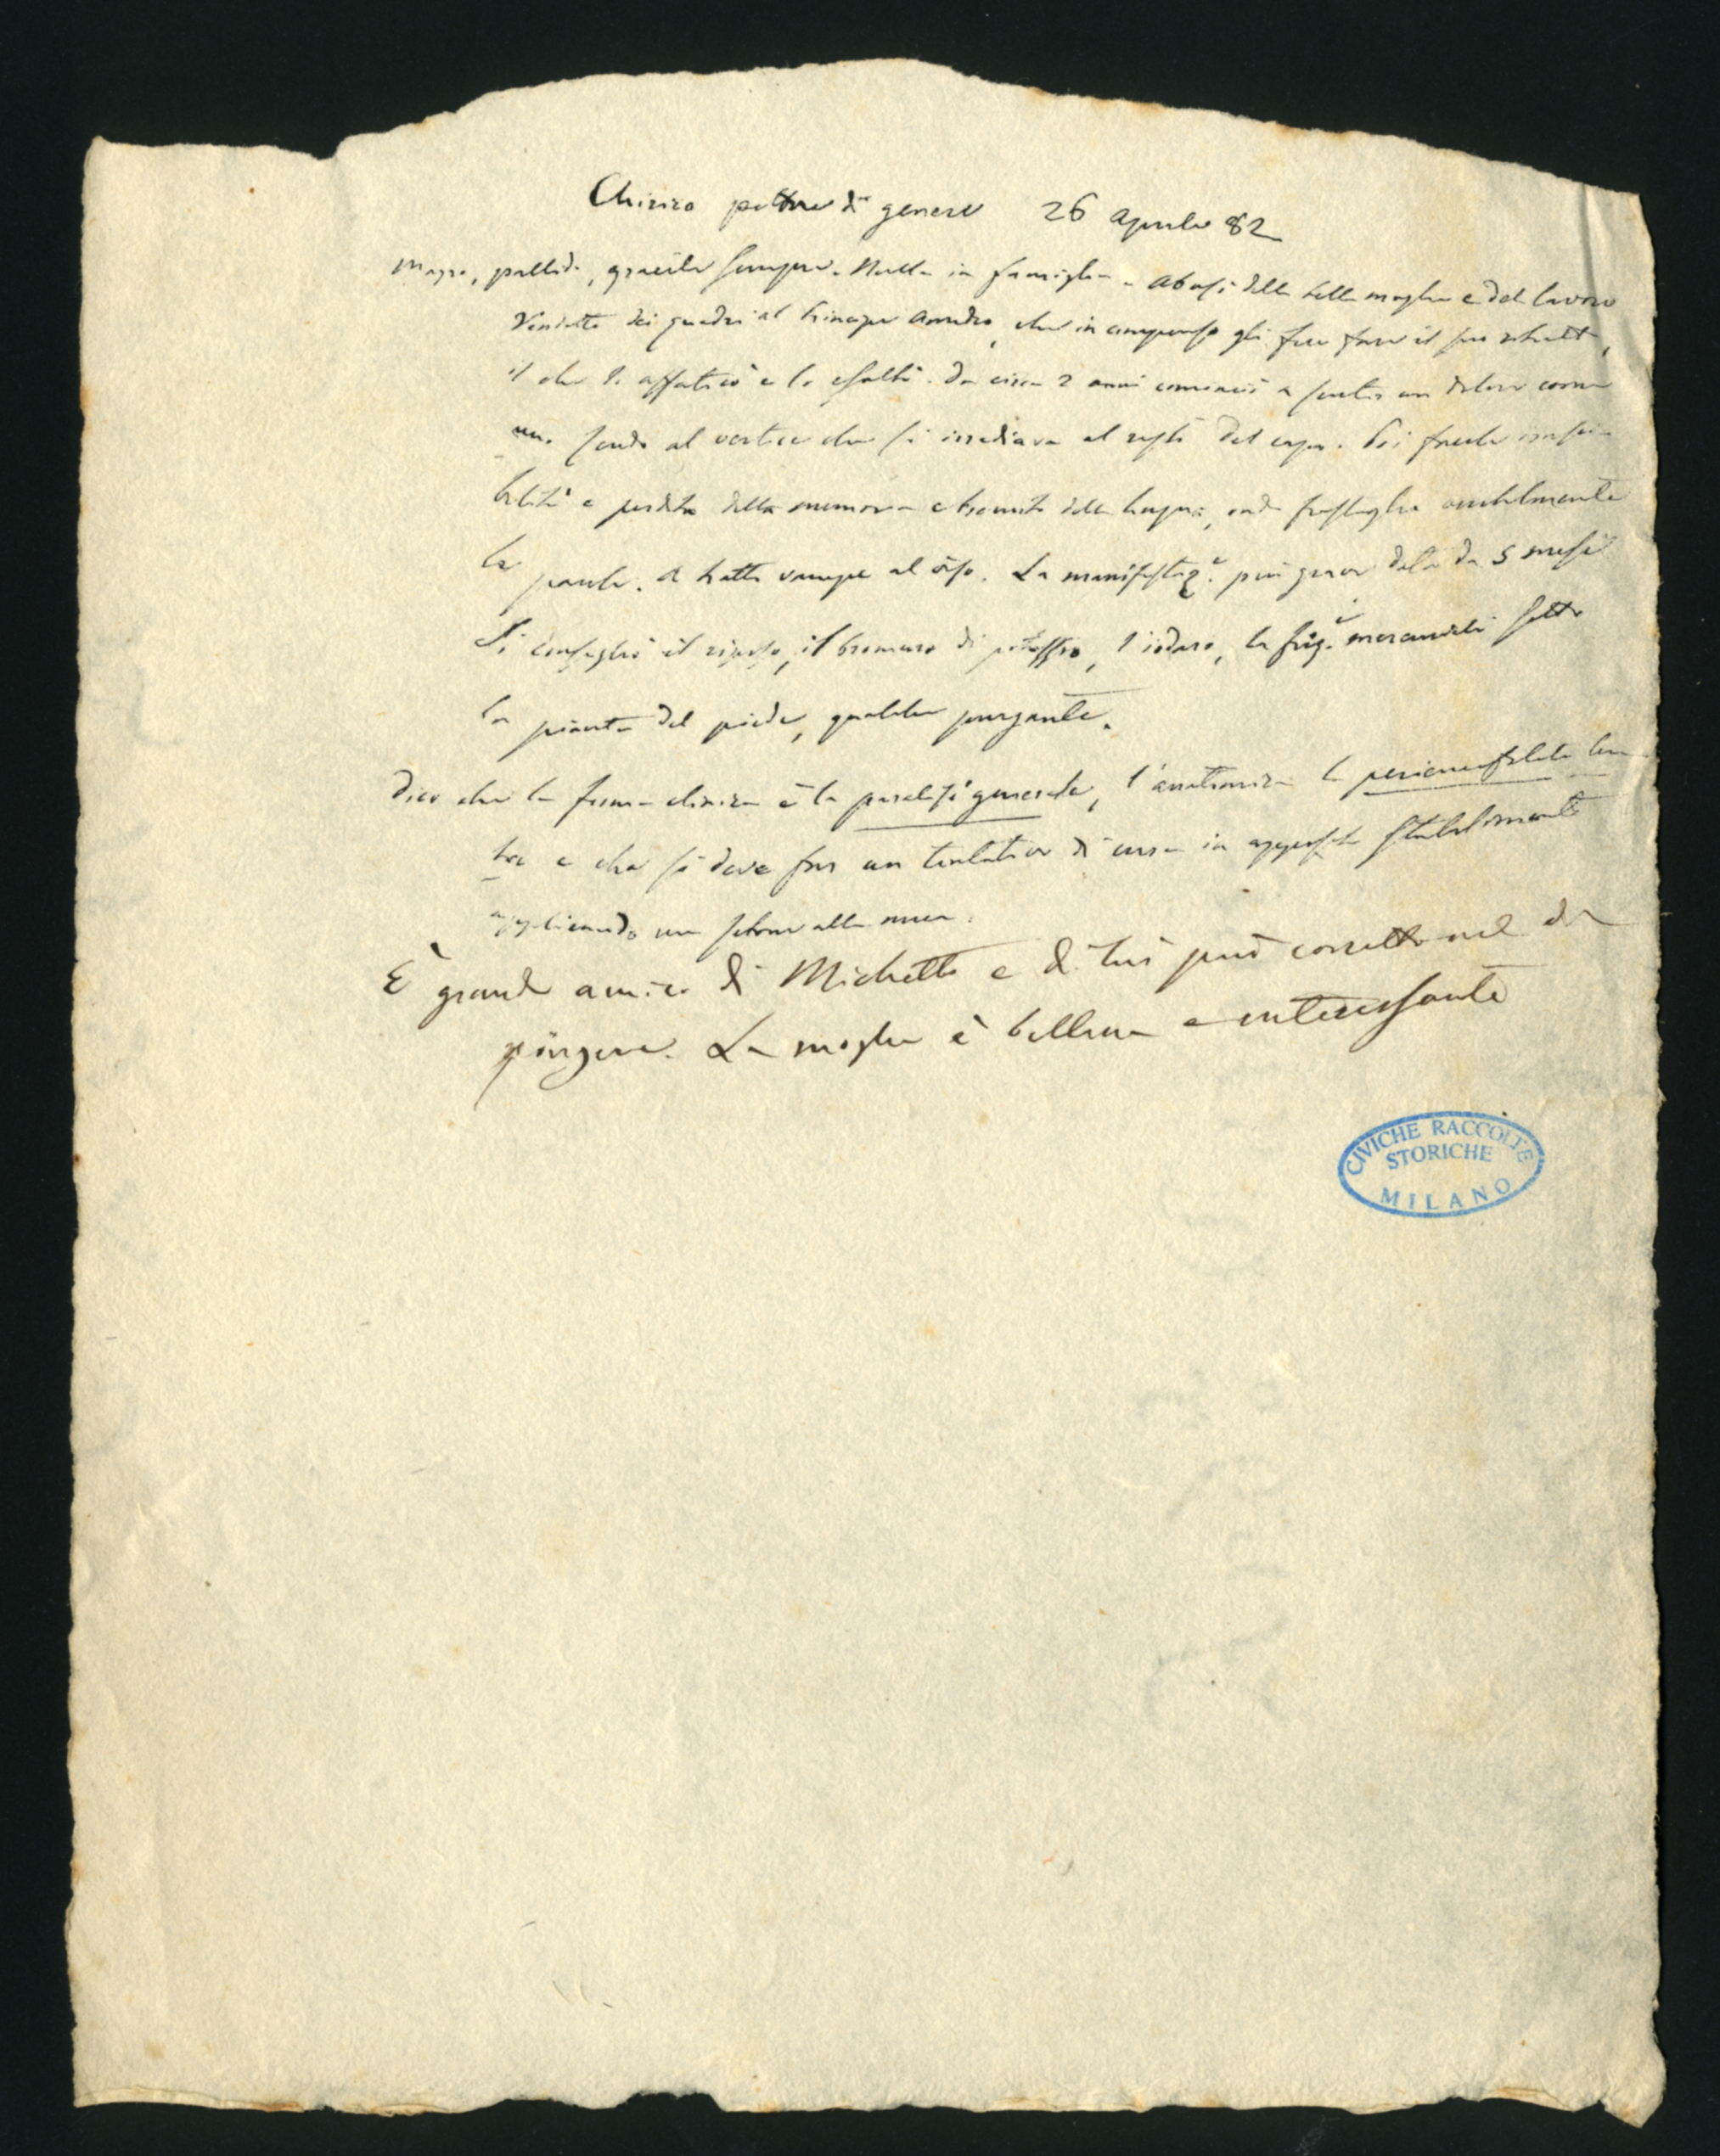 Chirico pittore di genere 26 aprile 82
Magro, pallido, gracile sempre. Nulla in famiglia. Abusi della bella moglie e del lavoro
Vendette dei quadri al Principe Amedeo, che in compenso gli fece fare il suo ritratto,
il che lo affaticò e lo esaltò. Da circa 2 anni cominciò a sentir un dolore come
un al vertice che si irradiava al resto del capo. Poi facile irasci-
bilità e perdita della memoria e tremito della lingua, onde frastaglia orribilmente
la parola. A tratti vampe al viso. La manifestaz.e più grave data da 5 mesi
Si consigliò il riposo, il bromuro di potassio, l'ioduro, la friz.e mercuriali sotto
la pianta del piede, qualche purgante.
Dico che la forma clinica è la paralisi generale, l'anatomica la periencefalite len
ta e che si deve fare un tentativo di cura in apposito stabilimento
applicando un setone alla nuca.
È grande amico di Michetti e da lui può corretto nel di
pingere. La moglie è bellina e interessante
CIVICHE RACCOLTE
STORICHE
MILANO